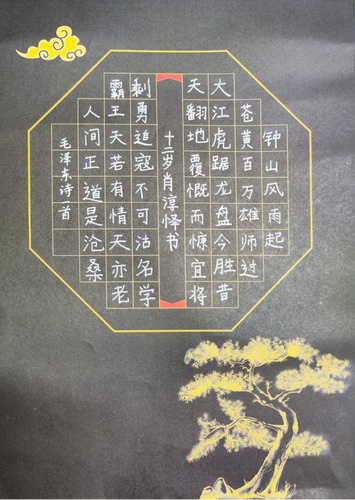 钟山风雨起
苍黄百万雄师过
大江虎踞龙盘今胜昔
天翻地覆慨而慷宜将
十二岁肖淳怿书
剩勇追寇不可沽名学
霸王天若有情天亦老
人间正道是沧桑
毛泽东诗首